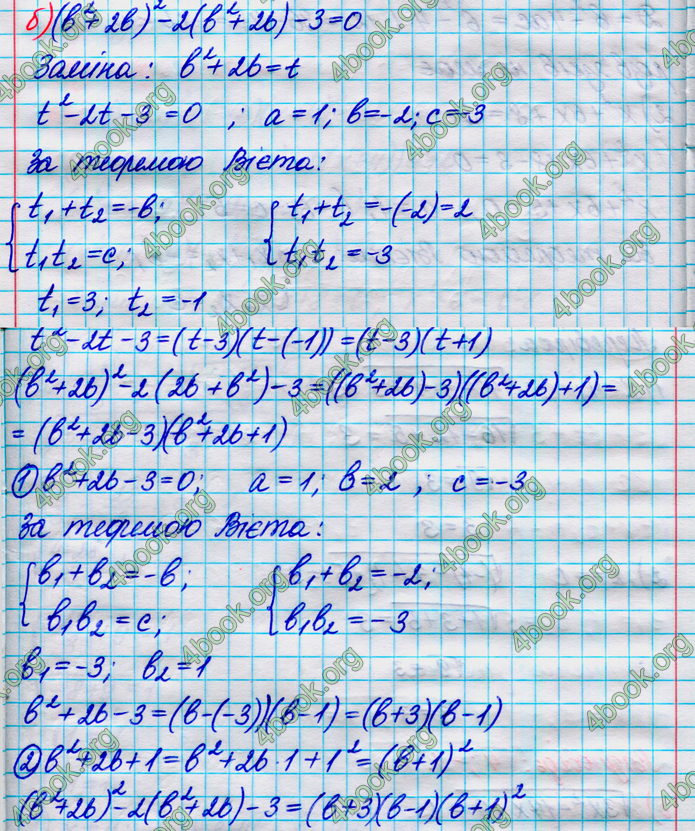 б) (b²+2b)²-2(b²+2b)-3=0
Заміна: b²+2b=t
t²-2t-3=0 ; a=1; b=-2; c=-3
За теоремою Вієта:
{t₁+t₂=-b; {t₁+t₂=-(-2)=2
{t₁t₂=c; {t₁t₂=-3
t₁=3; t₂=-1
t²-2t-3=(t-3)(t-(-1))=(t-3)(t+1)
(b²+2b)²-2(2b+b²)-3=((b²+2b)-3)((b²+2b)+1)=
=(b²+2b-3)(b²+2b+1)
① b²+2b-3=0; a=1; b=2 ; c=-3
За теоремою Вієта:
{b₁+b₂=-b; {b₁+b₂=-2;
{b₁b₂=c; {b₁b₂=-3
b₁=-3; b₂=1
b²+2b-3=(b-(-3))(b-1)=(b+3)(b-1)
② b²+2b+1=b²+2b·1+1²=(b+1)²
(b²+2b)²-2(b²+2b)-3=(b+3)(b-1)(b+1)²
4book.org